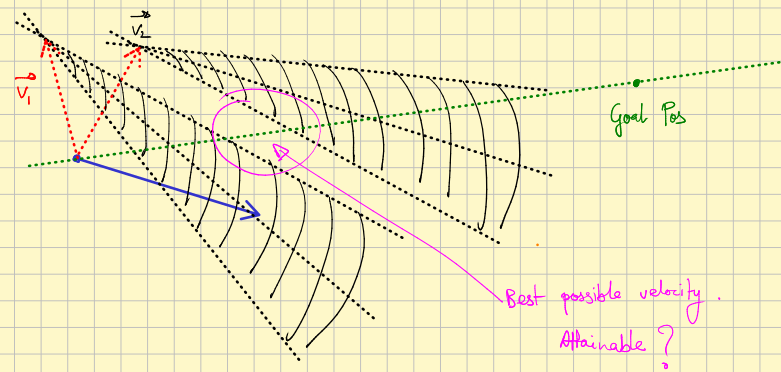 v₂
v₁
Goal Pos
Best possible velocity.
Attainable ?